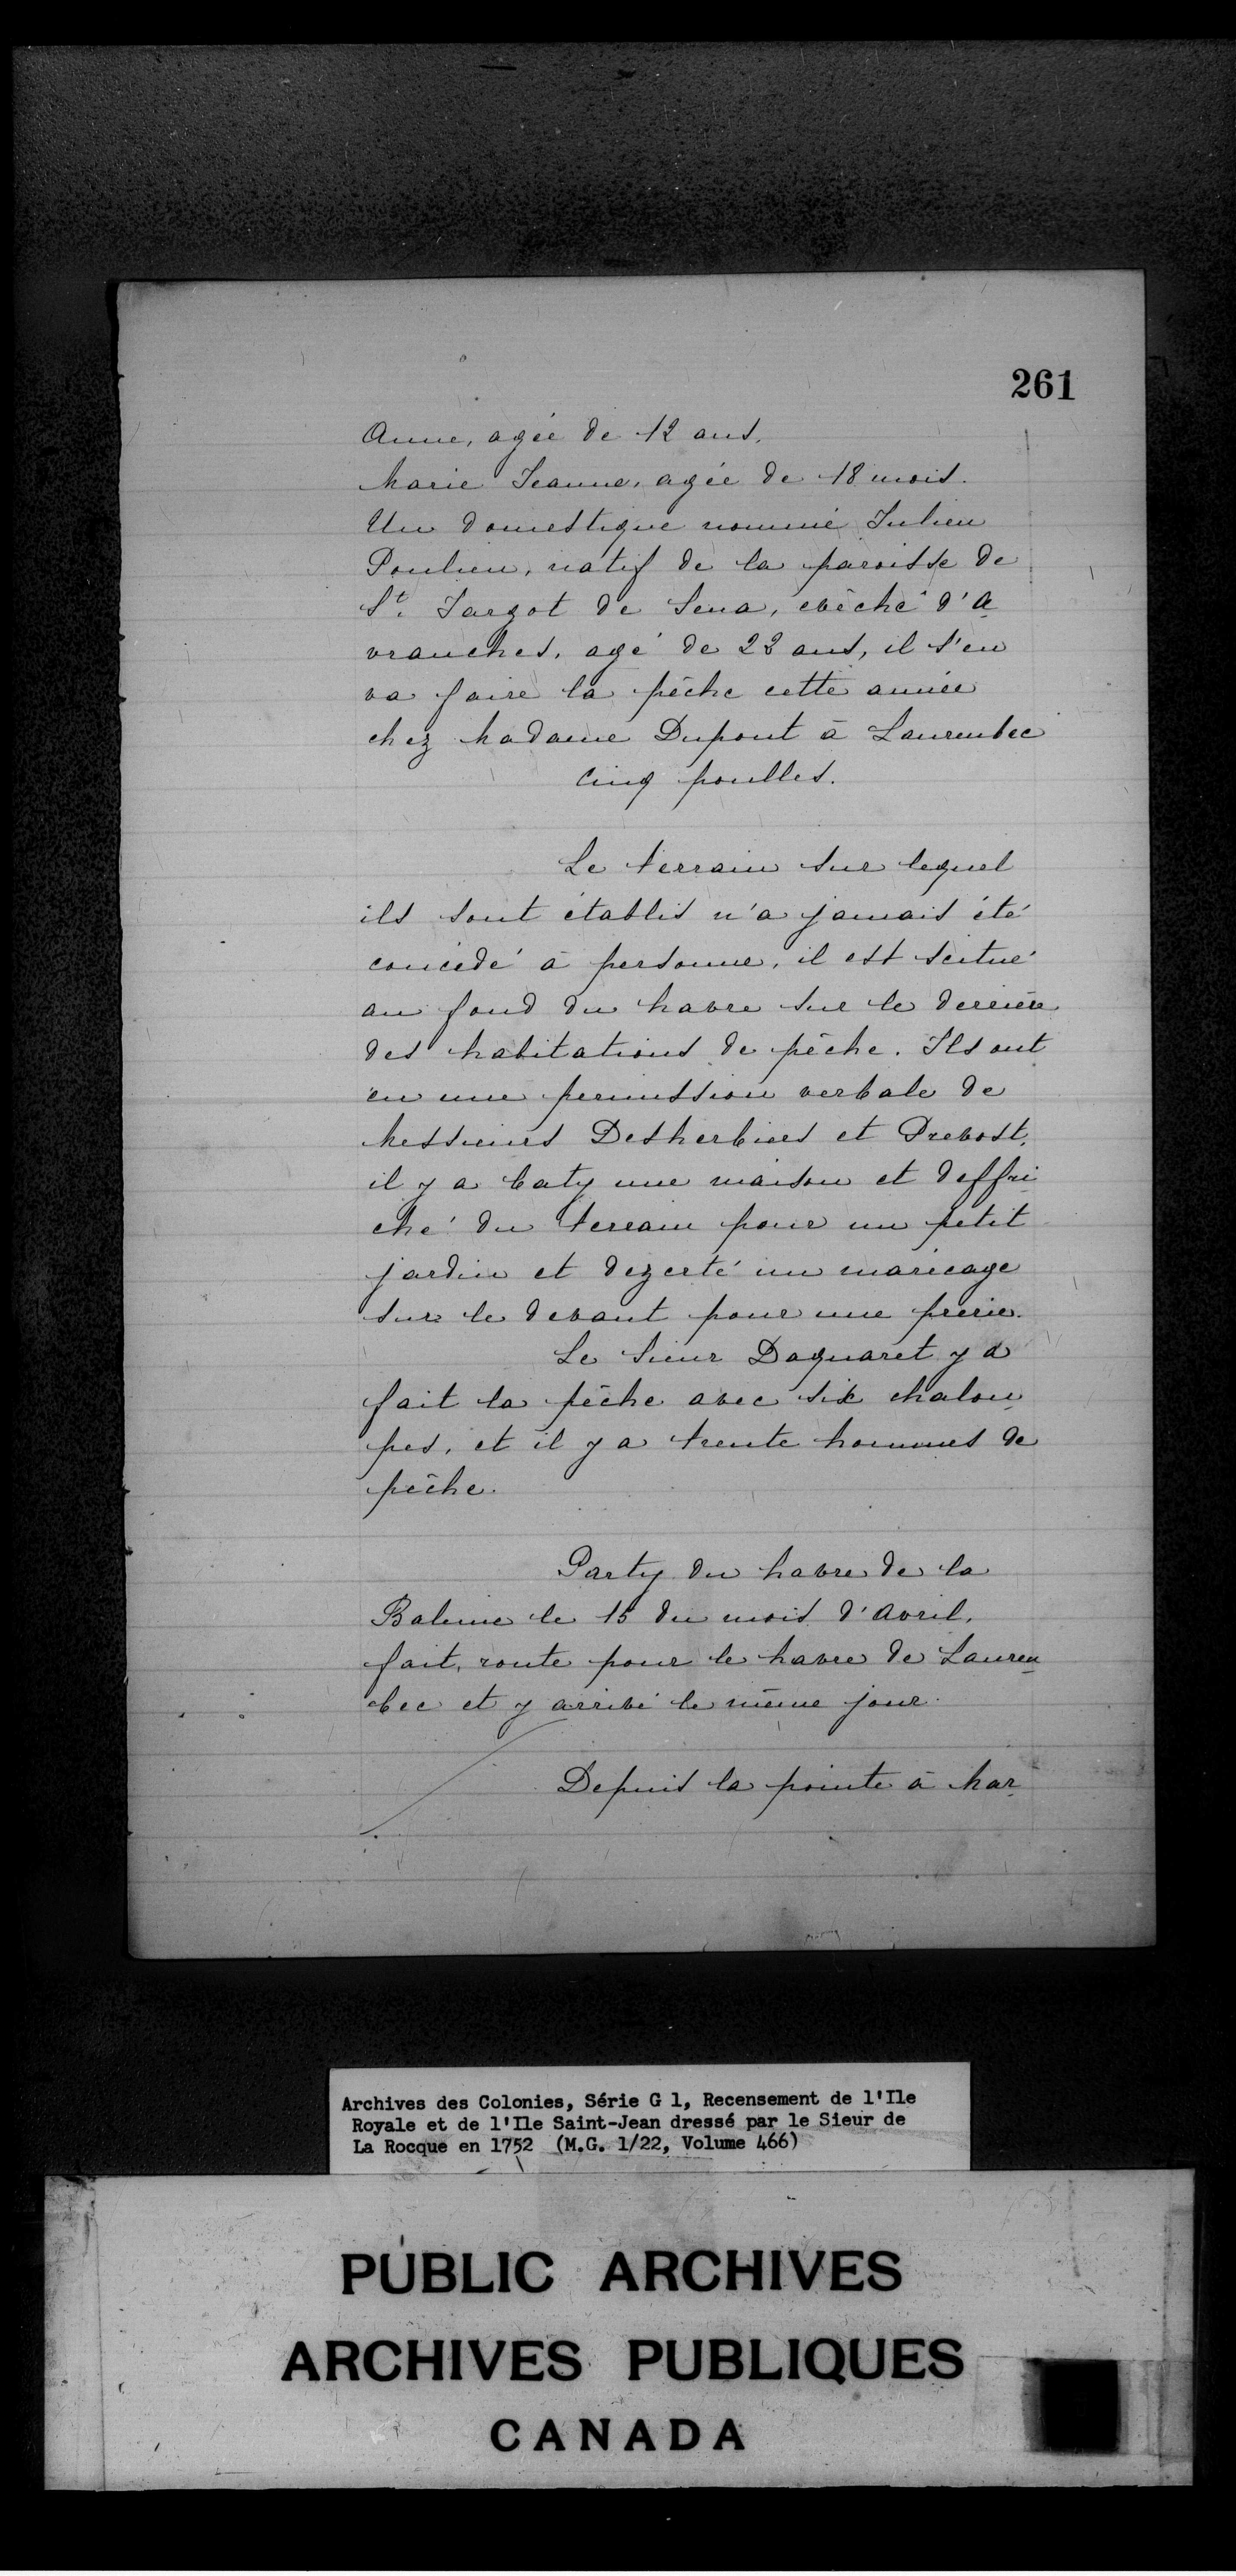 261
Anne, agée de 12 ans.
Marie Jeanne, agée de 18 mois.
Un domestique nommé Julien
Poulien, natif de la paroisse de
St. Jargot de Sena, evêché d'A
vranches, agé de 22 ans, il s'en
va faire la pêche cette année
chez Madame Dupont à Laurenbec
Cinq poulles.
Le terrain sur lequel
ils sont établis n'a jamais été
concédé à personne, il est scitué
au fond du havre sur le derrière
des habitations de pêche. Ils ont
eu une permission verbale de
Messieurs Desherbiers et Prevost,
il y a baty une maison et deffri
ché du terrain pour un petit
jardin et dezerté un marécage
sur le devant pour une prérie.
Le Sieur Daguaret y a
fait la pêche avec six chalou
pes, et il y a trente hommes de
pêche.
Party du havre de la
Baleine le 15 du mois d'Avril,
fait, route pour le havre de Lauren
bec et y arrivé le même jour.
Depuis la pointe à Mar
Archives des Colonies, Série G 1, Recensement de l'Ile
Royale et de l'Ile Saint-Jean dressé par le Sieur de
La Rocque en 1752 (M.G. 1/22, Volume 466)
PUBLIC ARCHIVES
ARCHIVES PUBLIQUES
CANADA